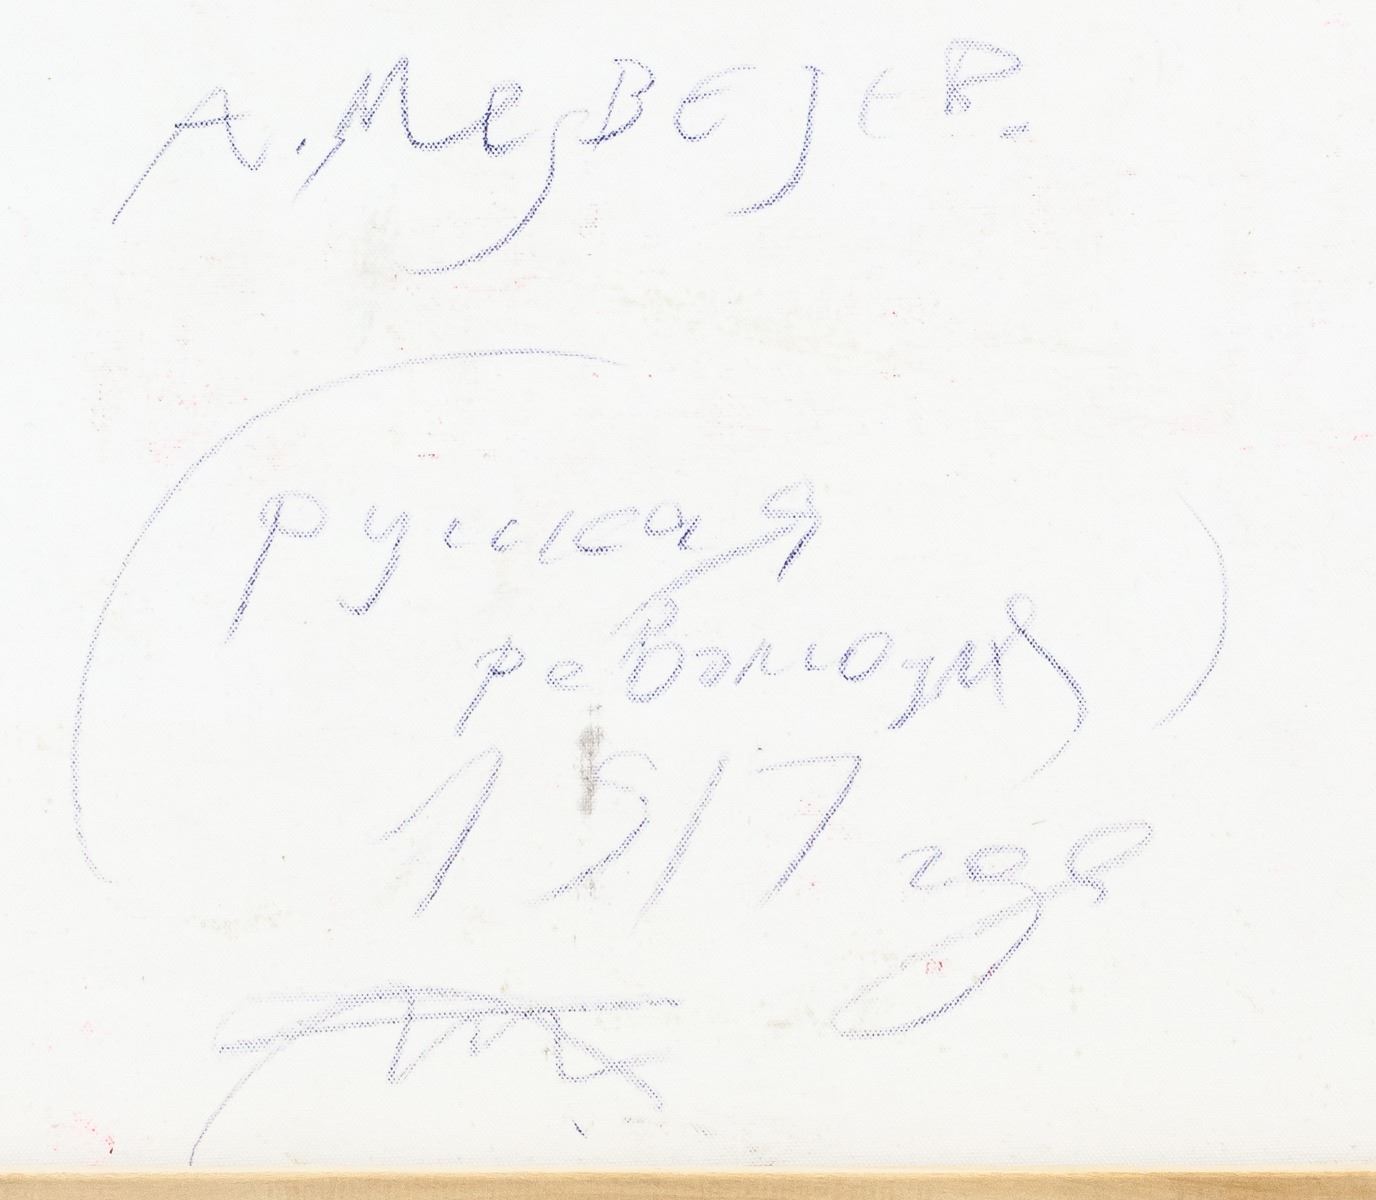 А. МедВЕдЕВ.
(русская
революция)
1917 года